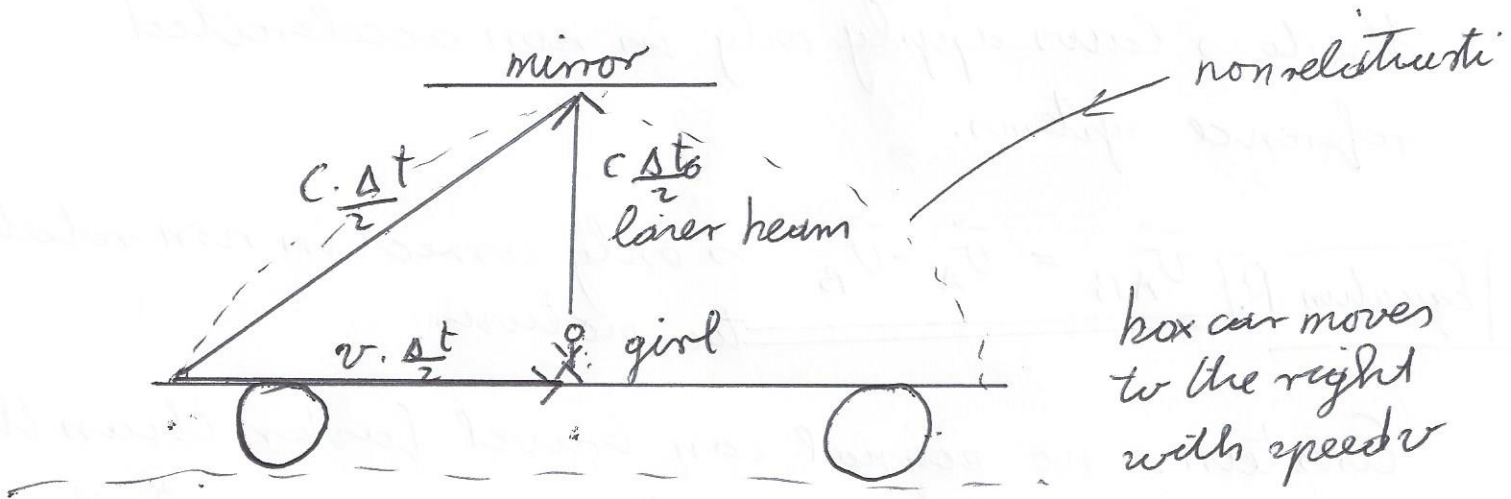 mirror
nonrelativisti
C · Δt/2
c Δt₀/2
laser beam
v · Δt/2
girl
box car moves
to the right
with speed v